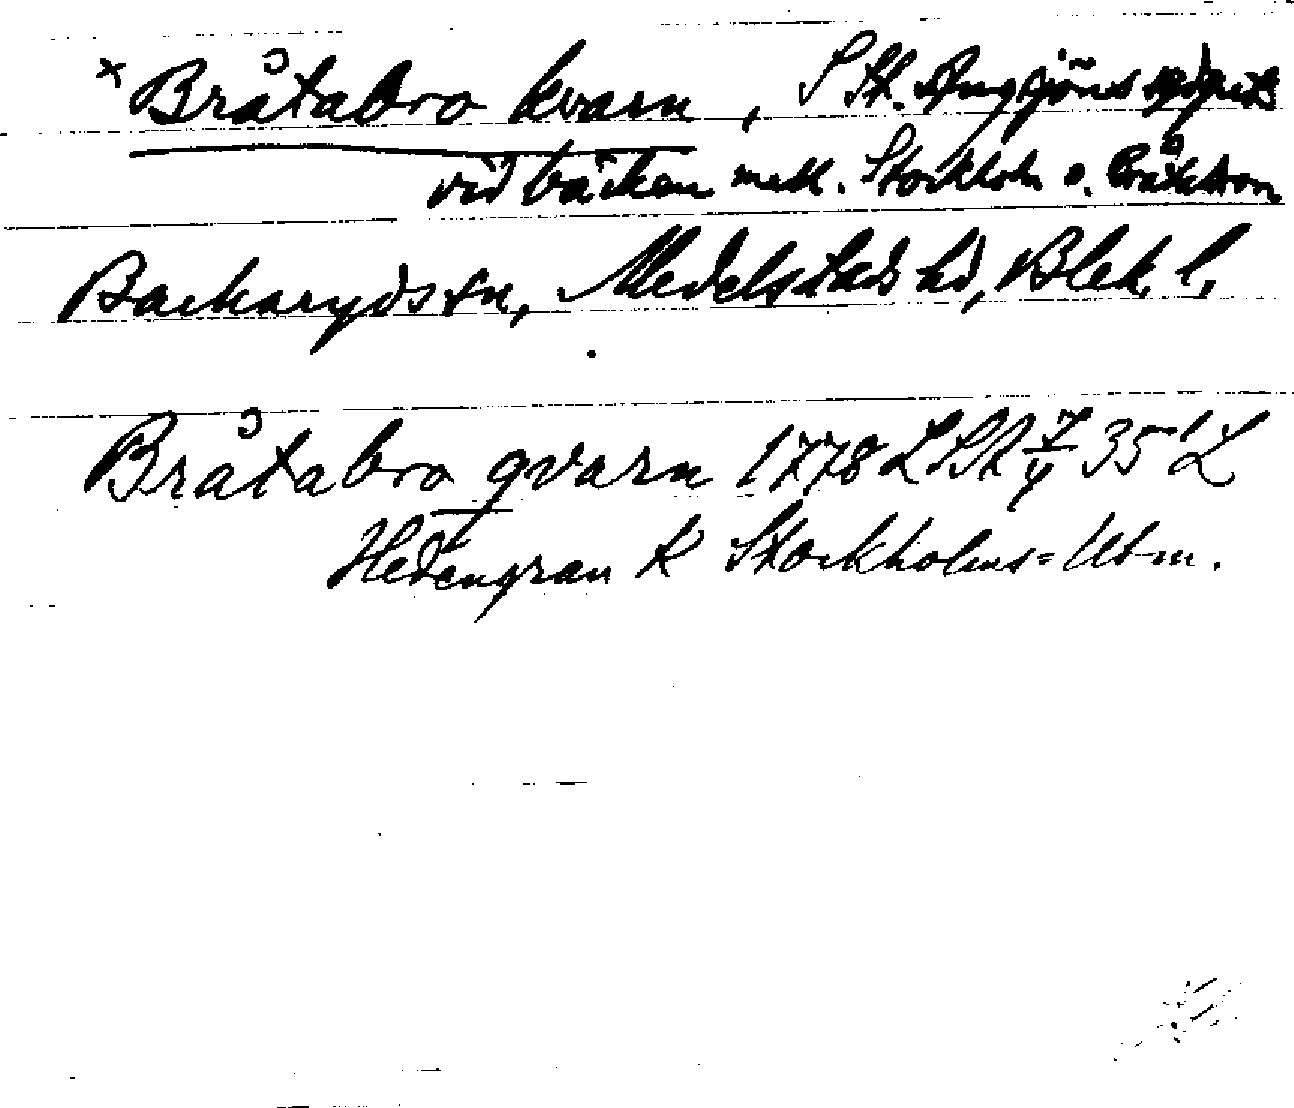 x Bråtabro kvarn, Stk.
vid bäcken mell. Stockholm o. Bråtabron
Backaryds sn, Medelstads hd, Blek. l.
Bråtabro qvarn 1778 LSA 35¹ L
Hedengran K Stockholms=Utm.